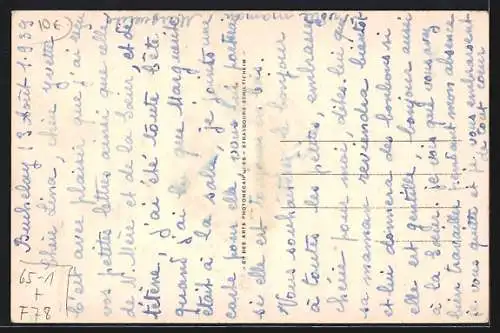 Buchelay 13 Août 1939
Chère Léna, chère Yvette
C'est avec plaisir que j'ai reçu
vos petites lettres ainsi que celle
de M. Mère et de la Sœur, et de
tétène, j'ai été toute bête
quand j'ai lu que Marguerite
était à la salle, je joute une
carte pour elle, vous la
si elle est
Vous souhaiterez le bonjour
à toutes les petites, embrassez
chérie pour moi, dites lui que
sa maman reviendra bientôt
et lui donnera des bonbons si
elle est gentille, bonjour aussi
à la Sœur, je vois que vous avez
bien travaillé pendant mon absence
je vous quitte en vous embrassant
de tout cœur
votre maman
DES ARTS PHOTOMECANIQUES - STRASBOURG-SCHILTIGHEIM
65-1
+
F78
10€